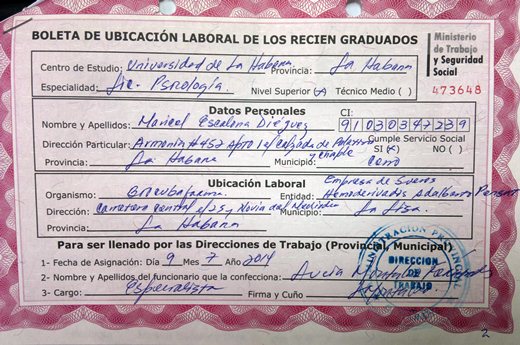 BOLETA DE UBICACIÓN LABORAL DE LOS RECIEN GRADUADOS
Ministerio
de Trabajo
y Seguridad
Social
Centro de Estudio: Universidad de La Habana Provincia: La Habana
Especialidad: Lic. Psicología. Nivel Superior (x) Técnico Medio ( )
473648
Datos Personales
CI:
Nombre y Apellidos: Maricel Escalona Diéguez 91030347239
Dirección Particular: Armonía #452 Apto 1 e/ Calzada de Palatino y Enable
Cumple Servicio Social
SI (x) NO ( )
Provincia: La Habana Municipio: Cerro
Ubicación Laboral
Organismo: Biocubafarma Entidad: Empresa de Sueros Hemoderivados Adalberto
Dirección: Carretera Central e/ 25 y Novia del Mediodía Municipio: La Lisa.
Provincia: La Habana
Para ser llenado por las Direcciones de Trabajo (Provincial, Municipal)
1- Fecha de Asignación: Día 9 Mes 7 Año 2014
2- Nombre y Apellidos del funcionario que la confecciona: Lucia
3- Cargo: Especialista Firma y Cuño
DIRECCION
DE
TRABAJO
2